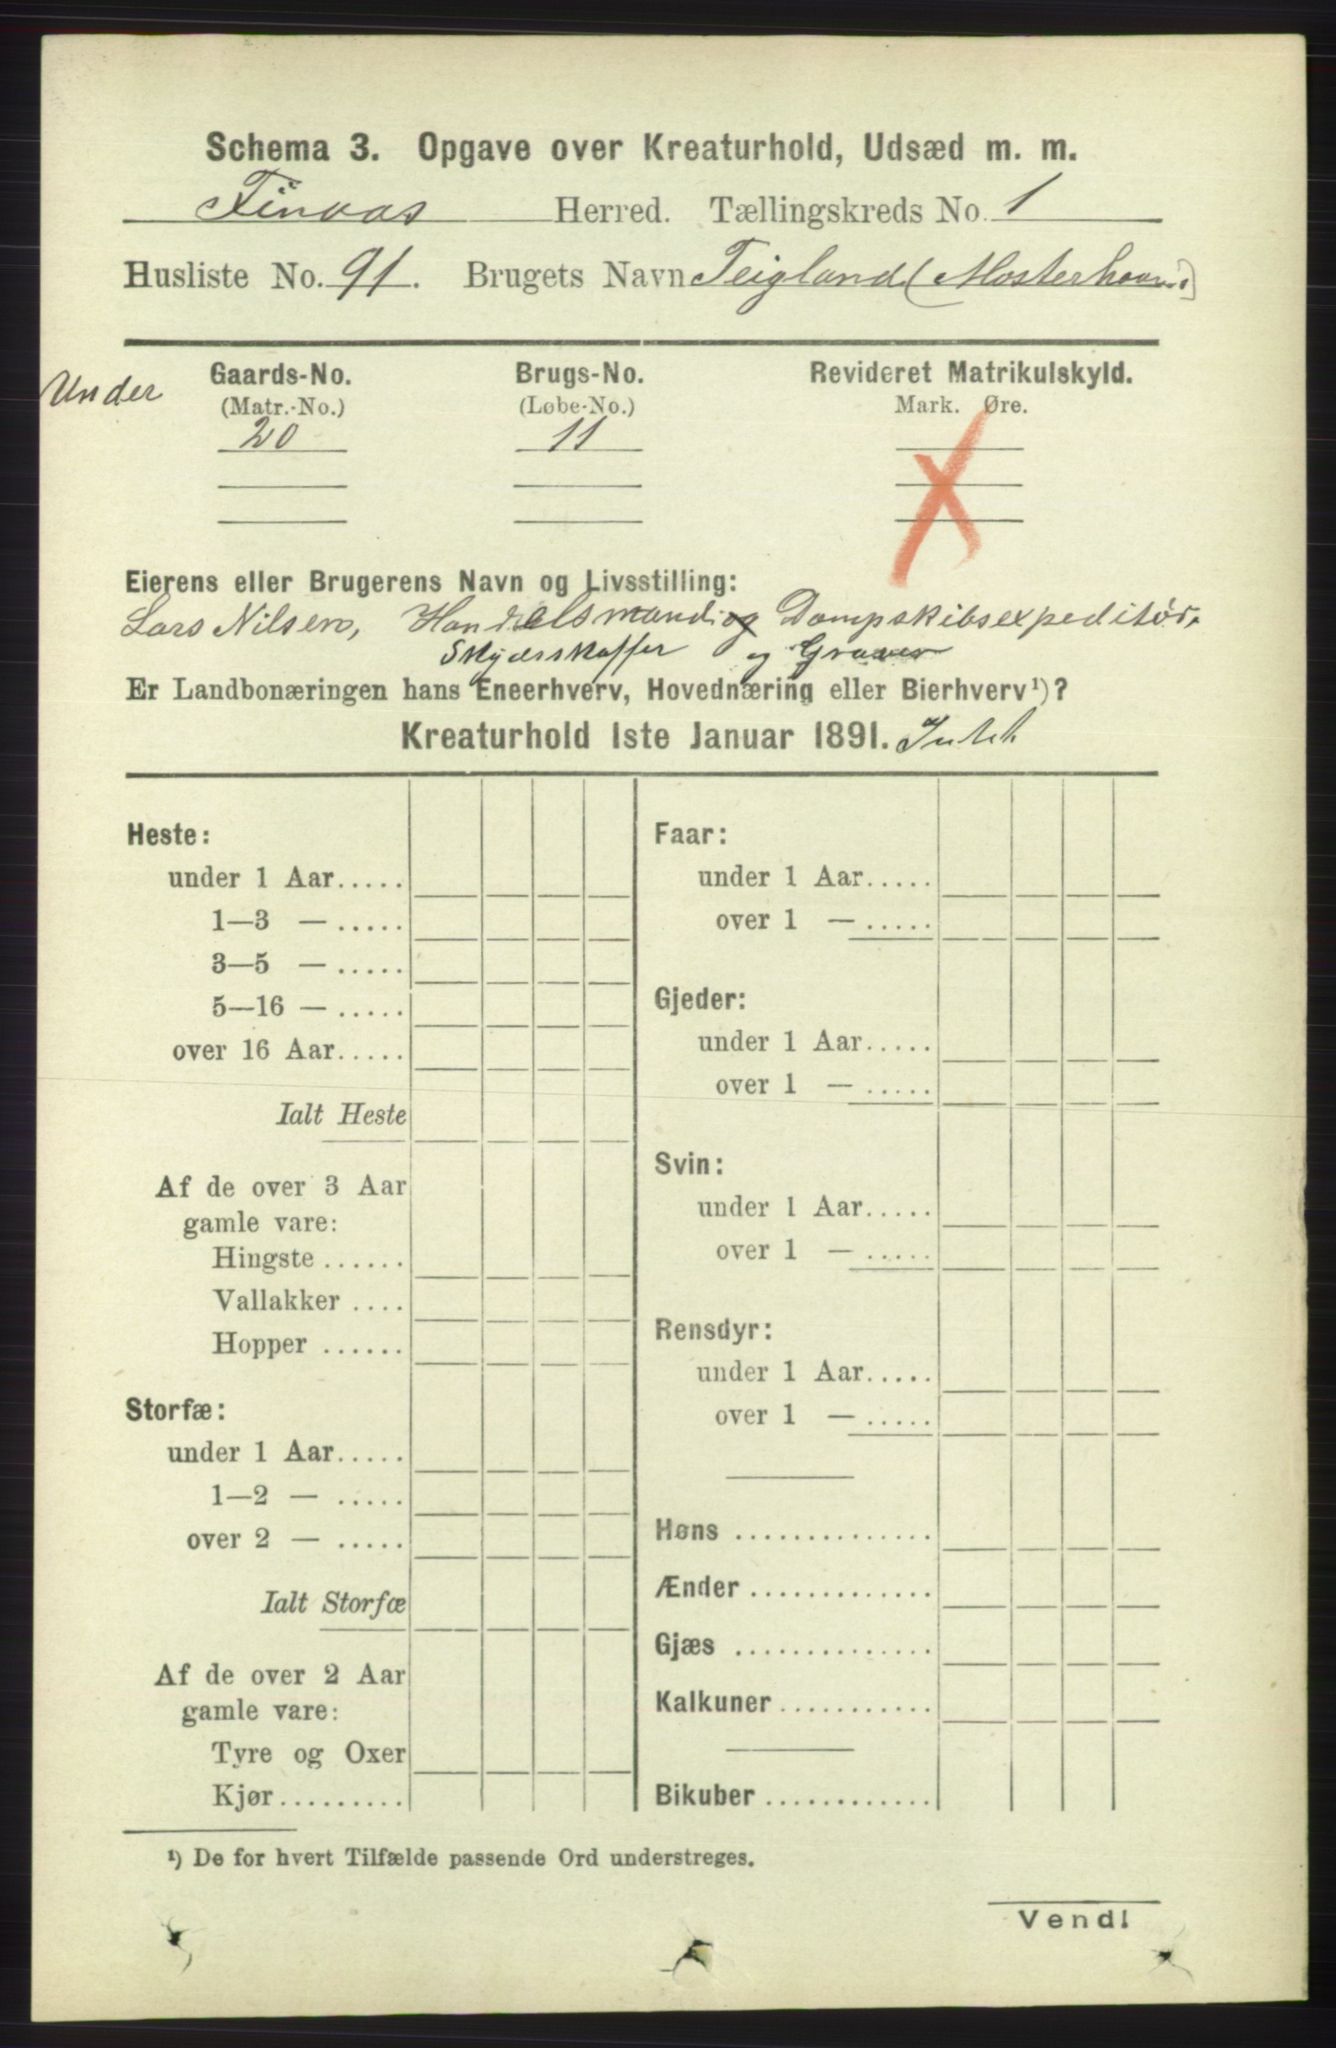 Schema 3. Opgave over Kreaturhold, Udsæd m. m.
Finaas Herred. Tællingskreds No. 1
Husliste No. 91. Brugets Navn Teigland (Mosterhavn)
Under
Gaards-No. Brugs-No. Revideret Matrikulskyld.
(Matr.-No.) (Løbe-No.) Mark. Øre.
20 11
Eierens eller Brugerens Navn og Livsstilling:
Lars Nilsen, Handelsmand og Dampskibsexpeditør,
Skydsskaffer og Graver
Er Landbonæringen hans Eneerhverv, Hovednæring eller Bierhverv¹)?
Kreaturhold 1ste Januar 1891. Intet
Heste:
under 1 Aar.....
1—3 — .....
3—5 — .....
5—16 — .....
over 16 Aar.....
Ialt Heste
Af de over 3 Aar
gamle vare:
Hingste ......
Vallakker ....
Hopper ......
Storfæ:
under 1 Aar.....
1—2 — .....
over 2 — .....
Ialt Storfæ
Af de over 2 Aar
gamle vare:
Tyre og Oxer
Kjør.........
Faar:
under 1 Aar.....
over 1 — .....
Gjeder:
under 1 Aar.....
over 1 — .....
Svin:
under 1 Aar.....
over 1 — .....
Rensdyr:
under 1 Aar.....
over 1 — .....
Høns ..............
Ænder .............
Gjæs ..............
Kalkuner ...........
Bikuber ............
¹) De for hvert Tilfælde passende Ord understreges.
Vend!